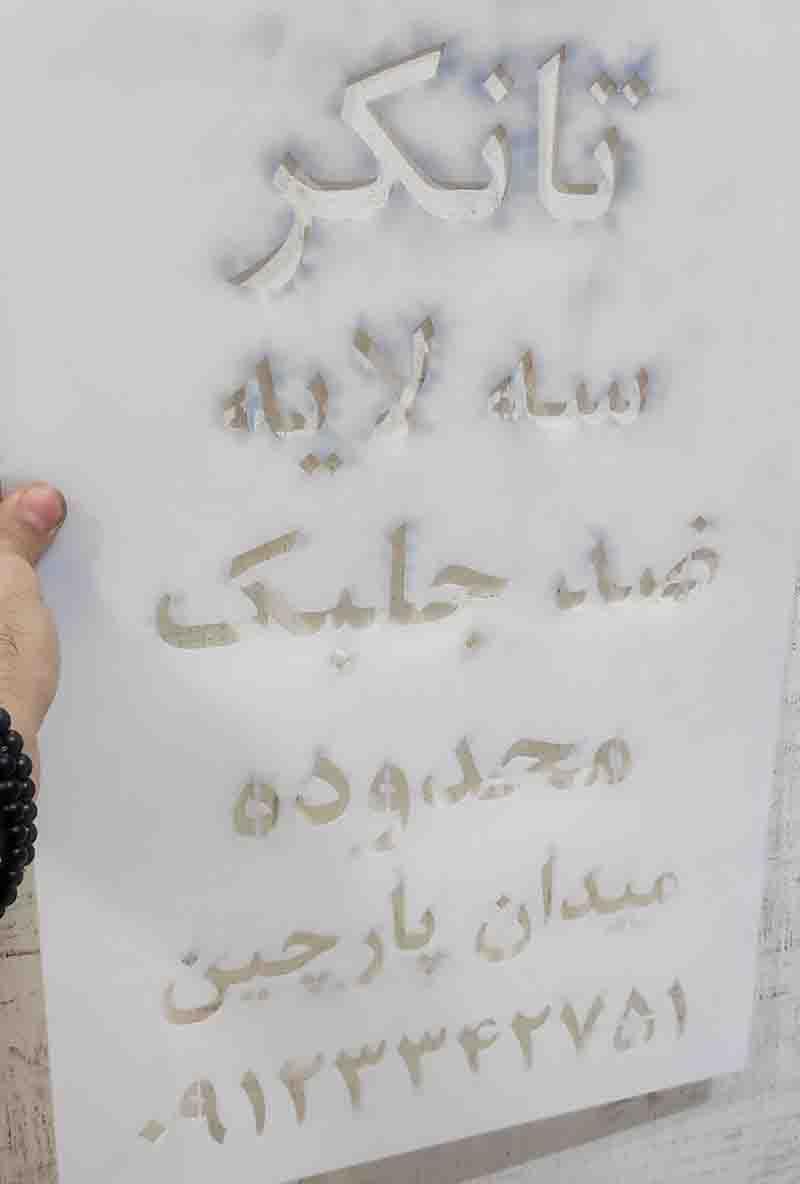 تانکر
سه لایه
ضد جلبک
محدوده
میدان پارچین
۰۹۱۲۳۳۴۲۷۵۱